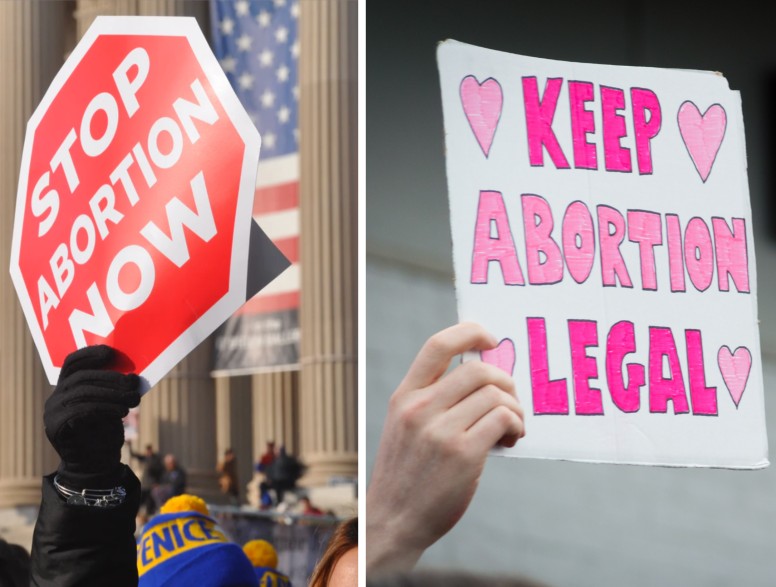 STOP
ABORTION
NOW
ENICE
KEEP
ABORTION
LEGAL